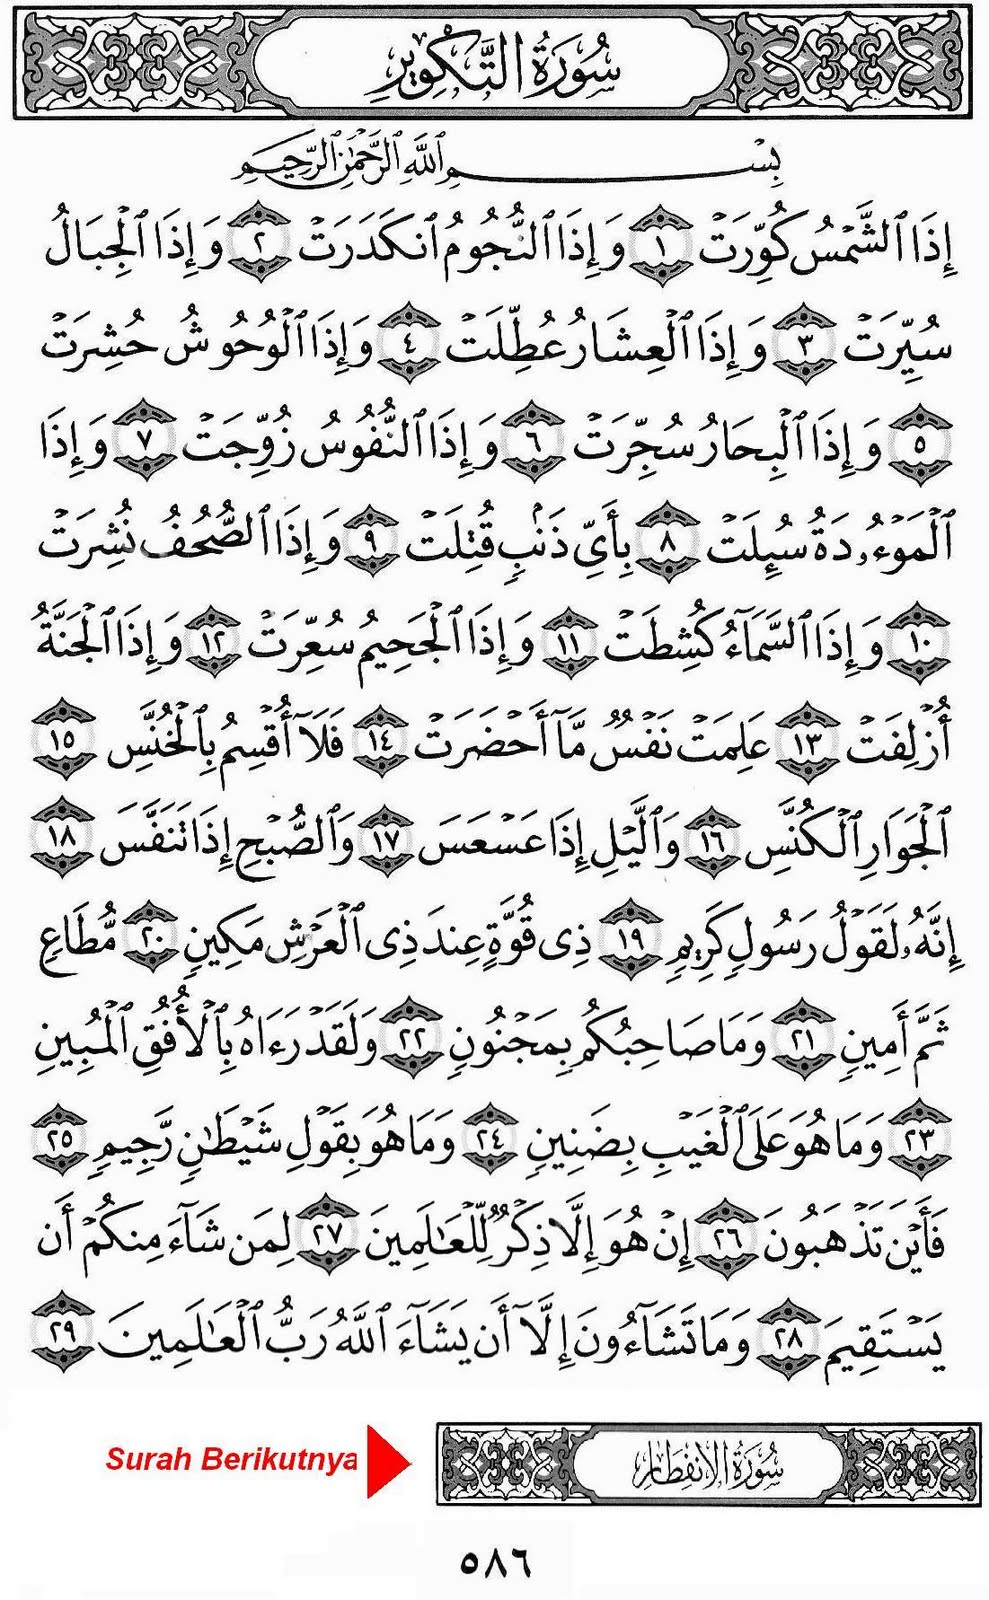 سُورَةُ التَّكْوِيرِ
بِسْمِ ٱللَّهِ ٱلرَّحْمَٰنِ ٱلرَّحِيمِ
إِذَا ٱلشَّمْسُ كُوِّرَتْ ١ وَإِذَا ٱلنُّجُومُ ٱنكَدَرَتْ ٢ وَإِذَا ٱلْجِبَالُ
سُيِّرَتْ ٣ وَإِذَا ٱلْعِشَارُ عُطِّلَتْ ٤ وَإِذَا ٱلْوُحُوشُ حُشِرَتْ
٥ وَإِذَا ٱلْبِحَارُ سُجِّرَتْ ٦ وَإِذَا ٱلنُّفُوسُ زُوِّجَتْ ٧ وَإِذَا
ٱلْمَوْءُۥدَةُ سُئِلَتْ ٨ بِأَىِّ ذَنۢبٍ قُتِلَتْ ٩ وَإِذَا ٱلصُّحُفُ نُشِرَتْ
١٠ وَإِذَا ٱلسَّمَآءُ كُشِطَتْ ١١ وَإِذَا ٱلْجَحِيمُ سُعِّرَتْ ١٢ وَإِذَا ٱلْجَنَّةُ
أُزْلِفَتْ ١٣ عَلِمَتْ نَفْسٌ مَّآ أَحْضَرَتْ ١٤ فَلَآ أُقْسِمُ بِٱلْخُنَّسِ ١٥
ٱلْجَوَارِ ٱلْكُنَّسِ ١٦ وَٱلَّيْلِ إِذَا عَسْعَسَ ١٧ وَٱلصُّبْحِ إِذَا تَنَفَّسَ ١٨
إِنَّهُۥ لَقَوْلُ رَسُولٍ كَرِيمٍ ١٩ ذِى قُوَّةٍ عِندَ ذِى ٱلْعَرْشِ مَكِينٍ ٢٠ مُّطَاعٍ
ثَمَّ أَمِينٍ ٢١ وَمَا صَاحِبُكُم بِمَجْنُونٍ ٢٢ وَلَقَدْ رَءَاهُ بِٱلْأُفُقِ ٱلْمُبِينِ
٢٣ وَمَا هُوَ عَلَى ٱلْغَيْبِ بِضَنِينٍ ٢٤ وَمَا هُوَ بِقَوْلِ شَيْطَٰنٍ رَّجِيمٍ ٢٥
فَأَيْنَ تَذْهَبُونَ ٢٦ إِنْ هُوَ إِلَّا ذِكْرٌ لِّلْعَٰلَمِينَ ٢٧ لِمَن شَآءَ مِنكُمْ أَن
يَسْتَقِيمَ ٢٨ وَمَا تَشَآءُونَ إِلَّآ أَن يَشَآءَ ٱللَّهُ رَبُّ ٱلْعَٰلَمِينَ ٢٩
Surah Berikutnya
سُورَةُ الانفِطار
٥٨٦